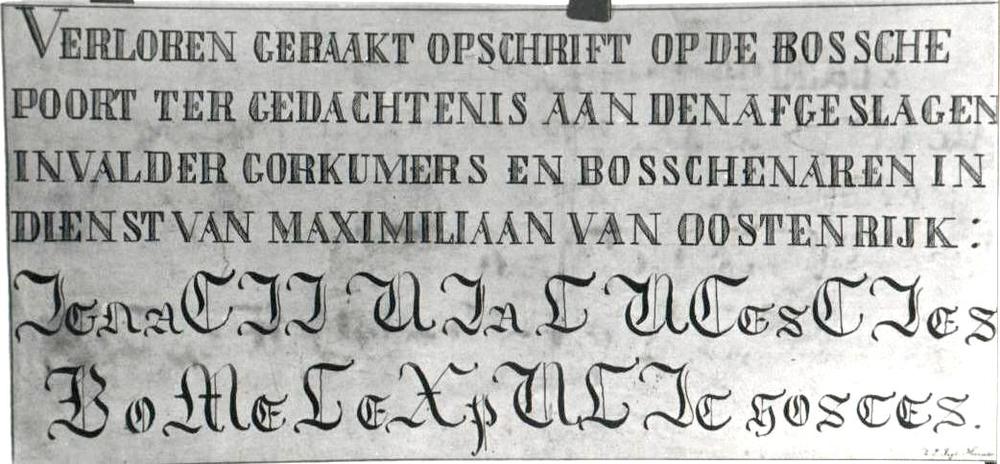 VERLOREN GERAAKT OPSCHRIFT OP DE BOSSCHE
POORT TER GEDACHTENIS AAN DEN AFGESLAGEN
INVAL DER GORKUMERS EN BOSSCHENAREN IN
DIENST VAN MAXIMILIAAN VAN OOSTENRIJK:
IgnaCII UIa LUCesCIes
BoMeL eXpULIt hostes.